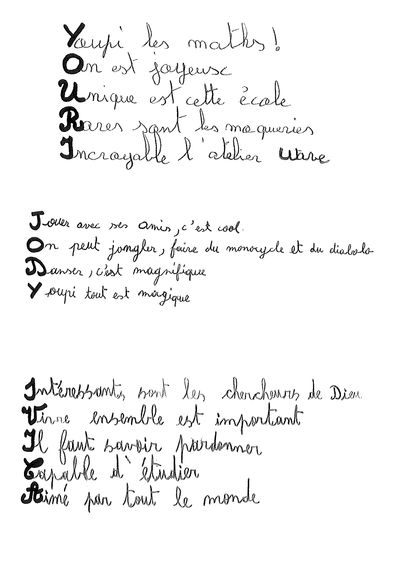 Youpi les maths!
On est joyeuse
Unique est cette école
Rares sont les moqueries
Incroyable l'atelier wave
Jouer avec ses amis, c'est cool.
On peut jongler, faire du monocycle et du diabolo
Danser, c'est magnifique
Youpi tout est magique
Intéressants sont les chercheurs de Dieu
Vivre ensemble est important
Il faut savoir pardonner
Capable d'étudier
Aimé par tout le monde